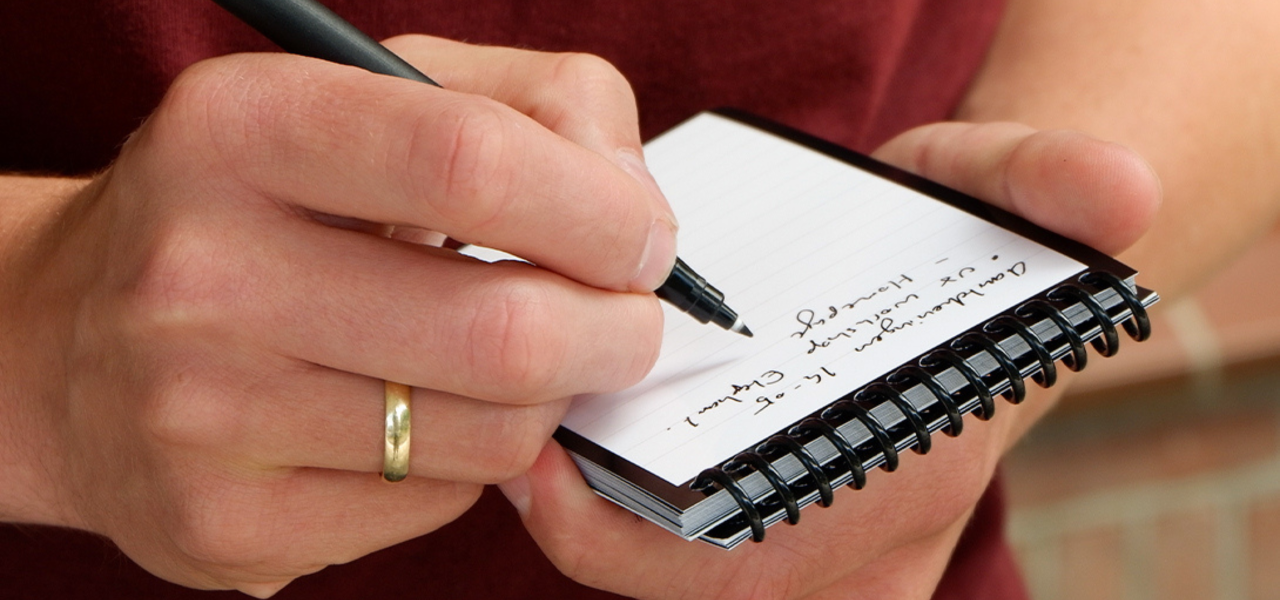 Aantekeningen 14-05
• UX workshop Elephant.
- Homepage